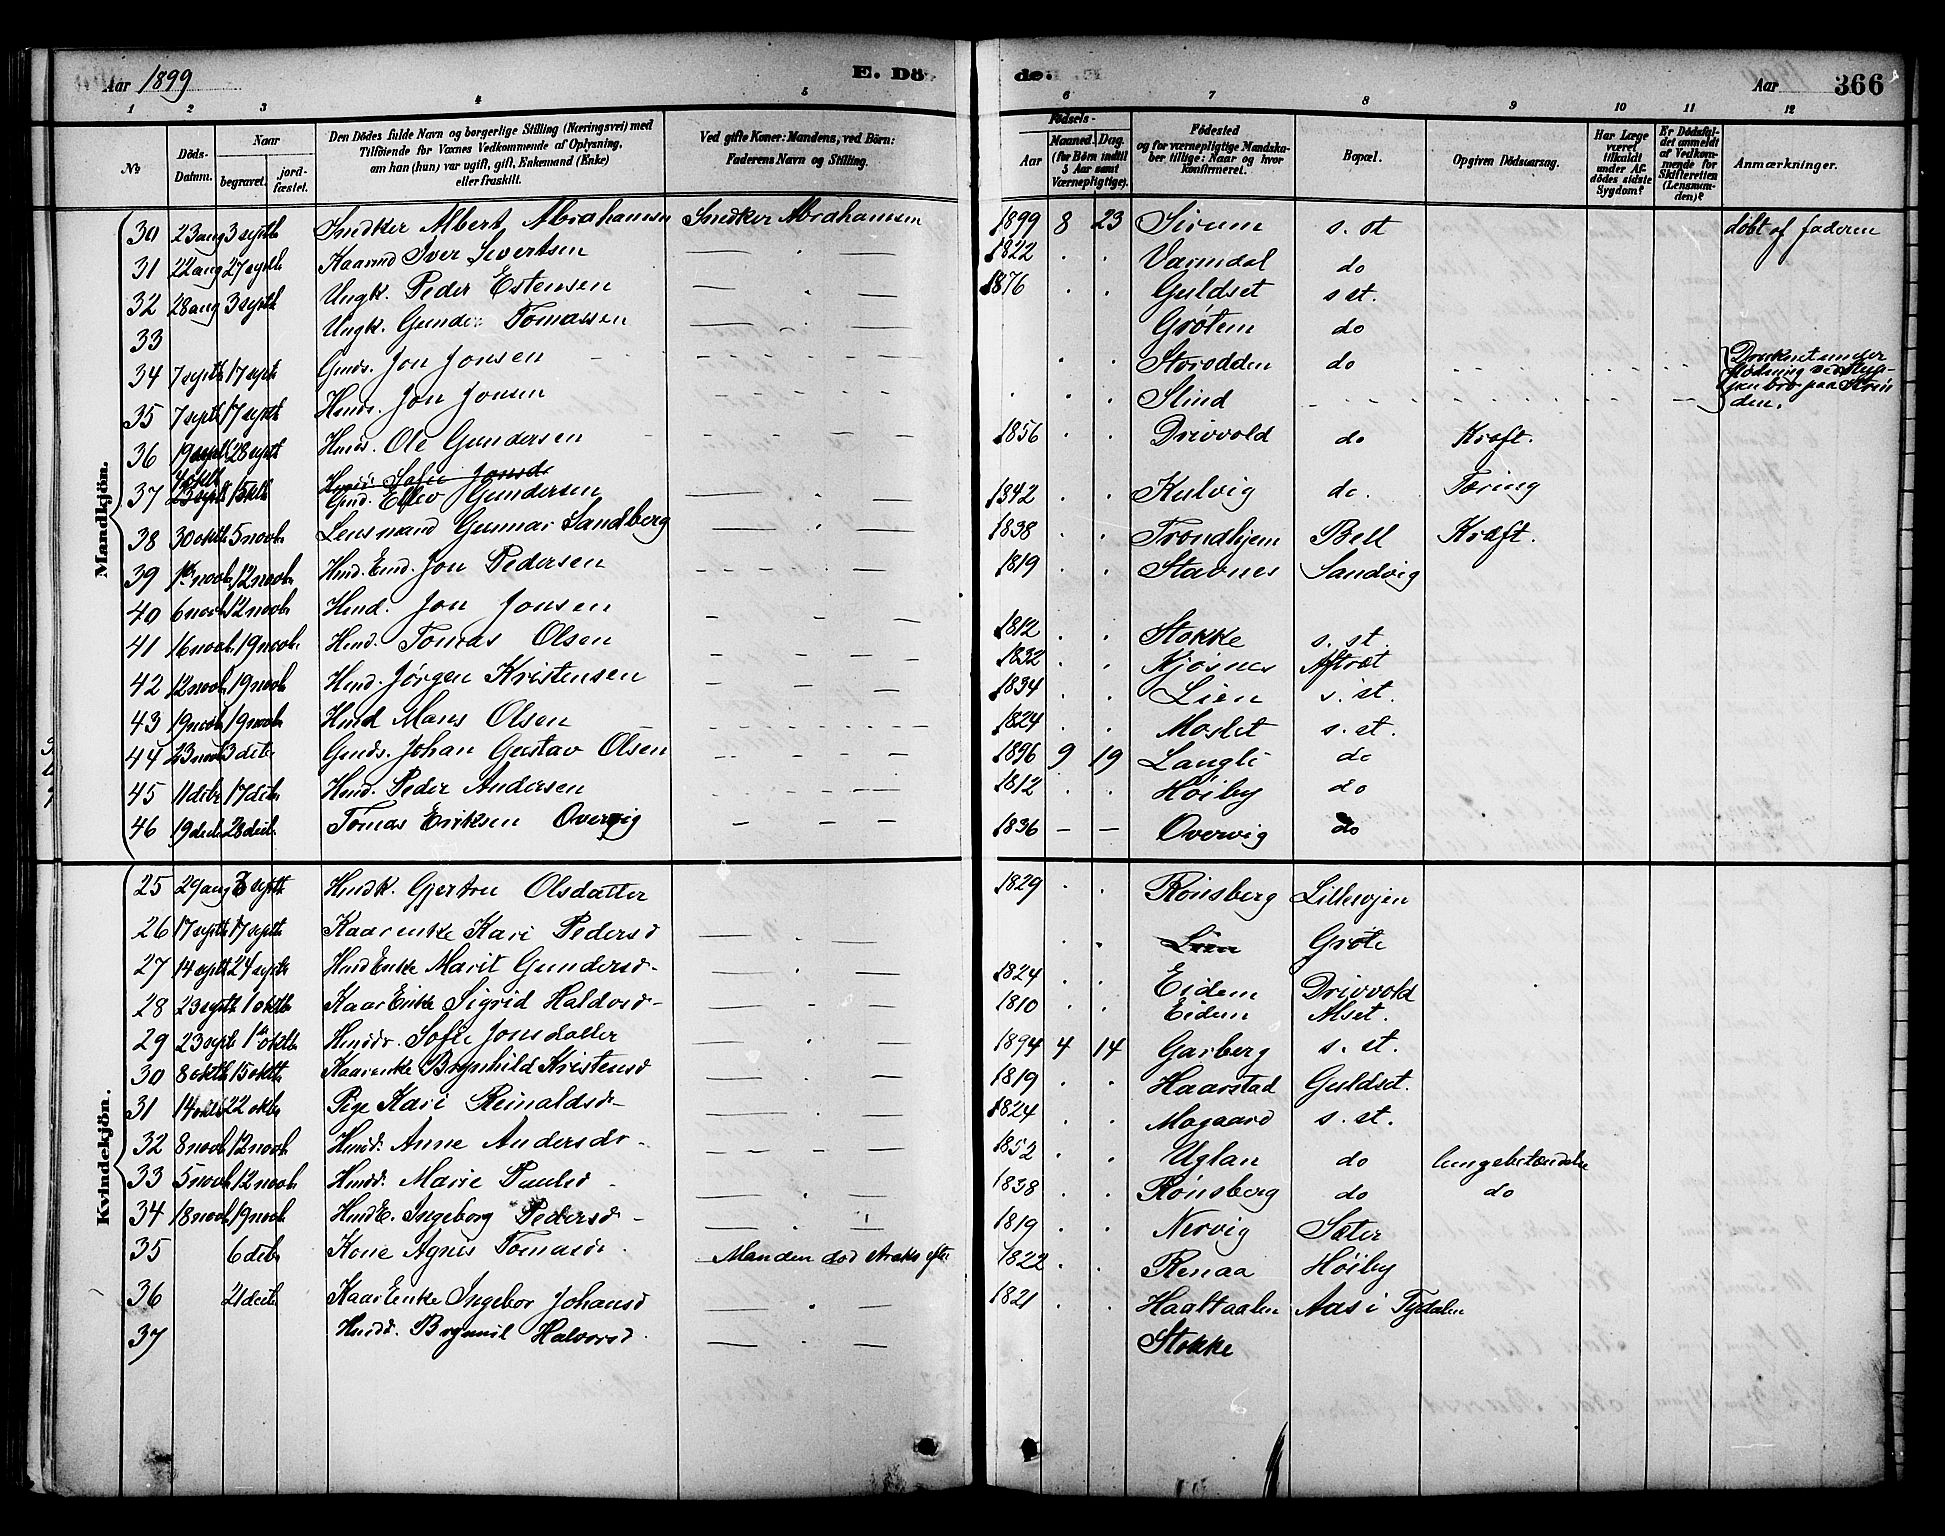 Aar 1899 E. Dö- de. Aar 366
1 2 3 4 5 6 7 8 9 10 11 12
No
Döds-Datum.
Naar begravet. jordfæstet.
Den Dödes fulde Navn og borgerlige Stilling (Næringsvei) med
Tilföiende for Voxnes Vedkommende af Oplysning,
om han (hun) var ugift, gift, Enkemand (Enke)
eller fraskilt.
Ved gifte Koner: Mandens, ved Börn:
Faderens Navn og Stilling.
Födsels-
Aar
Maaned. Dag.
(for Börn indtil
5 Aar samt
Værnepligtige).
Födested
og for værnepligtige Mandska-
ber tillige: Naar og hvor
konfirmeret.
Bopæl.
Opgiven Dödsaarsag.
Har Læge
været
tilkaldt
under Af-
dödes sidste
Sygdom?
Er Dödsfal-
det anmeldt
af Vedkom-
mende for
Skifteretten
(Lensman-
den)?
Anmærkninger.
Mandkjön.
30 23 aug 3 septb Indker Albert Abrahamsen Indker Abrahamsen 1899 8 23 Sirum s. st döbt af faderen
31 22 aug 27 septb Kaarmd Iver Sivertsen — . — 1822 . . Værndal do
32 28 aug 3 septb Ungk. Peder Estensen — . — 1876 . . Guldset s st.
33 Ungk. Gunder Tomassen — . — Grøtem do
34 7 septb 17 septb Gmds. Jon Jonsen . . Storodden do Drucknet under
flödning ved
bro paa Strin
den.
35 7 septb 17 septb Hmds. Jon Jonsen . . Slind
36 19 septb 28 septb Hmd. Ole Gundersen 1856 . . Drivvold do Kræft.
Sofie Jonsd
37 4 oktb 15 oktb Gmd. Ellev Gundersen — . — 1842 . . Kulvig do. Tæring
38 30 oktb 5 novb Lensmand Gunnar Sandberg — . — 1838 . . Trondhjem Bell Kræft.
39 novb 12 novb Hmd. Emd. Jon Pedersen 1819 . . Stavnes Sandvig
40 6 novb 12 novb Hmd. Jon Jonsen — — —
41 16 novb 19 novb. Hmd. Tomas Olsen — — — 1812 . . Stokke s. st.
42 12 novb 19 novb Hmd. Jörgen Kristensen — — — 1832 . . Kjösnes Aftret
43 19 novb 19 novb Hmd Mons Olsen 1834 . . Lien s. st.
44 23 novb 3 decb Gmds. Johan Gustav Olsen — — — 1824 . . Moslet s. st.
1896 9 19 Langli do
45 11 debr 17 debr Hmd. Peder Andersen 1812 . . Höiby do
46 19 decb 28 decb. Tomas Eriksen Overvig — — — 1836 — — Overvig do
Kvindekjön.
25 29 aug septb Hmdk. Gjertru Olsdatter 1829 . . Rönsberg Lillevjen
26 17 septb 17 septb Kaarenke Kari Pedersd — . — . . Grøte
27 14 septb 24 septb Hmd Enke Marit Gundersd — . — 1824 . . Eidem Drivvold
28 23 septb 1 oktb Kaar Enke Sigrid Haldosd — . — 1810 . . Eidem Alset.
29 23 septb 1 oktb Hmdds. Sofie Jonsdatter — . — 1894 4 14 Garberg s. st.
30 8 oktb 15 oktb Kaarenke Brynhild Kristensd — . — 1819 . . Haarstad Guldset.
31 14 oktb 22 oktb Pige Kari Reinaldsd — . — 1824 . . Mogaard s. st.
32 8 novb 12 novb Hmdd. Anne Andersdr — . — 1852 . . Uglan do lungebetændelse
33 5 novb 12 novb Hmdd. Marie Paulsd — . — 1838 . . Rönsberg do do
34 18 novb 19 novb Hmd E. Ingeborg Pedersd — . — 1819 . . Nervig Sæter
35 6 debr Kone Agnes Tomasdr Manden död straks efter 1822 . . Renaa Höiby
36 21 decb Kaar Enke Ingebor Johansd — . — 1821 . . Haaltaalen Aas i Tydalen
37 Hmdd. Brynnil Halvorsd. — . — Stokke